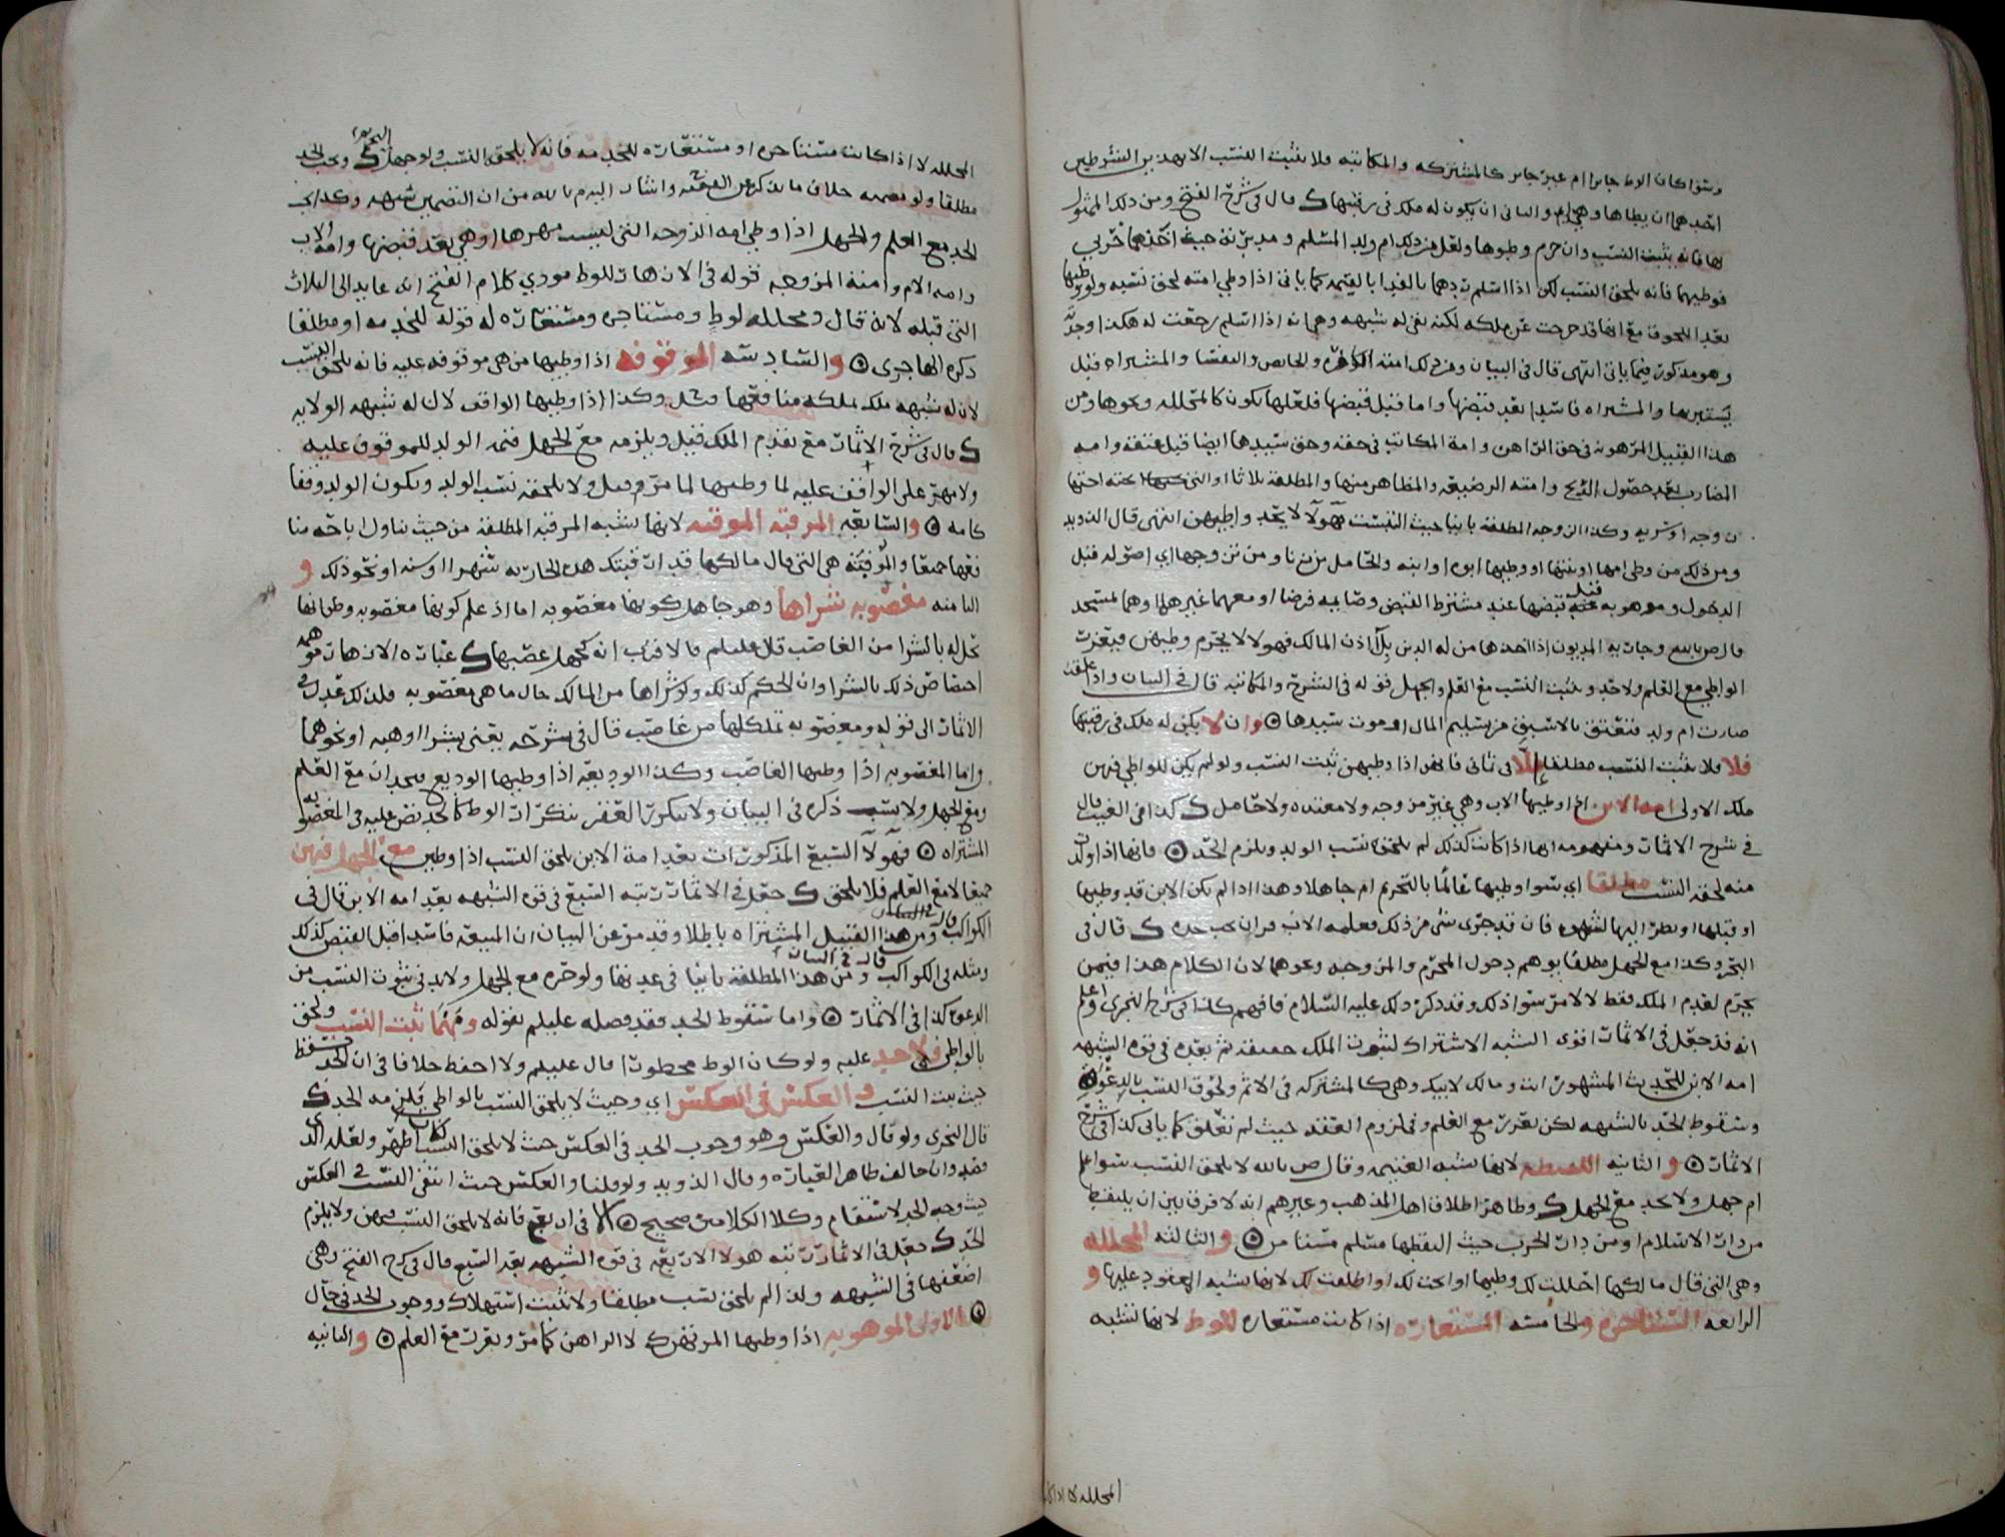 وسوا كان الوط جايزا ام غير جايز كالمشتركه والمكاتبه فلا يثبت النسب الا بهذين الشرطين
احدهما ان يطاها وهي ام والثاني ان يكون له ملك في رقبتها ك قال في شرح الفتح ومن ذلك
لها فانه يثبت النسب وان حرم وطوها ولعل من ذلك ام ولد المسلم و مدبرته حيث اخذهما حربي
فوطيهما فانه يلحق النسب لكن اذا اسلم ردهما بالفدا بالقيمه كما ياتي اذا وطي امته لحق نسبه ولو وطيها
بعد اللحوق مع انها قد خرجت عن ملكه لكنه بقي له شبهه وهي انه اذا اسلم رجعت له هكذا وجد
وهو مذكور فيما ياتي انتهى قال في البيان ومن ذلك امته الكافره والحايض والنفسا والمشتراه قبل
يستبريها والمشتراه فاسدا بعد قبضها واما قبل قبضها فلعلها تكون كالمحلله ونحوها ومن
هذا القبيل المرهونه في حق الراهن وامة المكاتب في حقه وحق سيدها ايضا قبل عتقه وامه
المضارب بعد حصول الربح وامته الرضيعه والمظاهر منها والمطلقه ثلاثا او التي تحته اختها
زوجه او سريه وكذا الزوجه المطلقه باينا حيث التبست فهولا لا يحد واطيهن انتهى قال الذويد
ومن ذلك من وطى امها او بنتها او وطيها ابوه او ابنه والحامل من زنا ومن تزوجها اي اصوله قبل
الدخول وموهوبه قبل قبضها عند مشترط القبض وصا ايه فرضا او معهما غيرهما او هما لمسجد
قال ص بالله وجاريه المديون اذا اخذها من له الدين بلا اذن المالك فهولا لا يحرم وطيهن فيعزر
الواطي مع العلم ولا حد ويثبت النسب مع العلم والجهل قوله في الشرح والمكاتبه قال في البيان واذا علقت
صارت ام ولد فتعتق بالاسبق من تسليم المال او موت سيدها ۞ وان لا يكن له ملك في رقبتها
فلا فلا يثبت النسب مطلقا الا في ثماني فانهن اذا وطيهن ثبت النسب ولو لم يكن للواطي فيهن
ملك الاولى امه الابن اذا وطيها الاب وهي غير مزوجه ولا معتده ولا حامل ك كذا في الغيث قال
في شرح الاثمار ومفهومه انها اذا كانت كذلك لم يلحق نسب الولد ويلزم الحد ۞ فانها اذا ولدت
منه لحقه النسب مطلقا اي سوا وطيها عالما بالتحريم ام جاهلا وهذا اذا لم يكن الابن قد وطيها
او قبلها او نظر اليها لشهوه فان قد جرى شي من ذلك فعلمه الاب قران يجب حده ك قال في
البحر وكذا مع الجهل مطلقا يوهم دخول المحرم والمزوجه ونحوهما لان الكلام هذا فيمن
يحرم لعدم الملك فقط لا لامر سوا ذلك وقد ذكر ذلك عليه السلام فافهم كذا في شرح النجري واعلم
انه قد جعل في الاثمار اقوى الشبه الاشتراك لثبوت الملك حقيقه ثم بعده في قوه الشبهه
امه الابن للحديث المشهور انت ومالك لابيك وهي كالمشتركه في الاثم ولحوق النسب بالدعوه
وسقوط الحد بالشبهه لكن يعزر مع العلم وفي لزوم العقد حيث لم تعلق كما ياتي كذا في شرح
الاثمار ۞ و الثانيه اللقيطه لانها تشبه الغنيمه وقال ص بالله لا يلحق النسب سوا علم
ام جهل ولا يحد مع الجهل ك وظاهر اطلاق اهل المذهب وغيرهم انه لا فرق بين ان يلتقط
من دار الاسلام او من دار الحرب حيث التقطها مسلم مستامن ۞ و الثالثه المحلله
وهي التي قال مالكها احللت لك وطيها او ابحت لك او اطلقت لك لانها تشبه المعقود عليها و
الرابعه المستاجره والخامسه المستعاره اذا كانت مستعاره للوط لانها تشبه
المحلله لا اذا كانت
المحلله لا اذا كانت مستاجره او مستعاره للخدمه فانه لا يلحق النسب ولو جهل التحريم ك ويجب الحد
مطلقا ولو خلاف ما ذكره الفقيه واشار اليه م بالله من ان التضمين شبهه وكذا يجب
الحد مع العلم والجهل اذا وطي امه الزوجه التي ليست مهرها او هي بعد قبضها وامة الاب
وامه الام وامته المزوجه قوله في الازهار للوط مودي كلام الفتح انه عايد الى الثلاث
التي قبله لانه قال ومحلله لوط ومستاجره ومستعاره له قوله للخدمه او مطلقا
ذكره الهاجري ۞ والسادسه الموقوفه اذا وطيها من هي موقوفه عليه فانه يلحق النسب
لان له شبهه ملك لملكه منافعها وكذا اذا وطيها الواقف لان له شبهه الولايه
ك قال في شرح الاثمار مع تقدم الملك قبل ويلزمه مع الجهل قيمه الولد للموقوف عليه
ولا مهر على الواقف عليه لما وطيها لما مر وقيل ولا يلحقه نسب الولد ويكون الولد وقفا
كامه ۞ والسابعه المرقبه الموقته لانها تشبه المرقبه المطلقه من حيث تناول اباحه منا
فعها جميعا والموقته هي التي قال مالكها قد ارقبتك هذه الجاريه شهرا او سنه او نحو ذلك و
الثامنه مغصوبه شراها وهو جاهل كونها مغصوبه اما اذ علم كونها مغصوبه وظن انها
تحل له بالشرا من الغاصب قال عليلم فالاقرب انه كجهل غصبها ك عبارة الازهار توهم
اختصاص ذلك بالشرا وان الحكم كذلك ولو شراها من المالك حال ما هي مغصوبه فلذلك عدل في
الاثمار الى قوله ومغصوبه تملكها من غاصب قال في شرحه يعني بشرا او هبه او نحوهما
واما المغصوبه اذا وطيها الغاصب وكذا الوديعه اذا وطيها الوديع فيحدان مع العلم
ومع الجهل ولا نسب ذكره في البيان ولا يتكرر العقر بتكرار الوط كالحد نص عليه في المغصوبه
المشتراه ۞ فهولا السبع المذكورات بعد امة الابن يلحق النسب اذا وطين مع الجهل فيهن
جميعا لا مع العلم فلا يلحق ك جعل في الاثمار رتبه السبع في قوه الشبهه بعد امه الابن قال في
الكواكب ومن هذا القبيل المشتراه باطلا وقد مر عن البيان ان المبيعه فاسدا قبل القبض كذلك
ومثله في الكواكب قال في البيان ومن هذا المطلقه باينا في عدتها ولو حره مع الجهل ولا بد في ثبوت النسب من
الدعوه كذا في الاثمار ۞ واما سقوط الحد فقد فصله عليلم بقوله ومهما ثبت النسب ولحق
بالواطي فلا حد عليه ولو كان الوط محظورا قال عليلم ولا احفظ خلافا في ان الحد يسقط
حيث ثبت النسب و العكس في العكس اي وحيث لا يلحق النسب بالواطي يلزمه الحد ك
قال النجري ولو قال والعكس وهو وجوب الحد في العكس حيث لا يلحق النسب لكان اظهر ولعله الذي
قصد وان خالف ظاهر العباره وقال الذويد ولو قلنا والعكس حيث انتفى النسب في العكس
حيث وجب الحد لاستقام وكلا الكلامين صحيح ۞ الا في اربع فانه لا يلحق النسب فيهن ولا يلزم
الحد ك جعل في الاثمار رتبه هولا الاربعه في قوه الشبهه بعد السبع قال في شرح الفتح وهي
اضعفها في الشبهه ولذا لم يلحق نسب مطلقا ولا يثبت استهلاك ووجوب الحد في حال
۞ الاولى الموهونه اذا وطيها المرتهن ك لا الراهن كما مر ويعزر مع العلم ۞ والثانيه